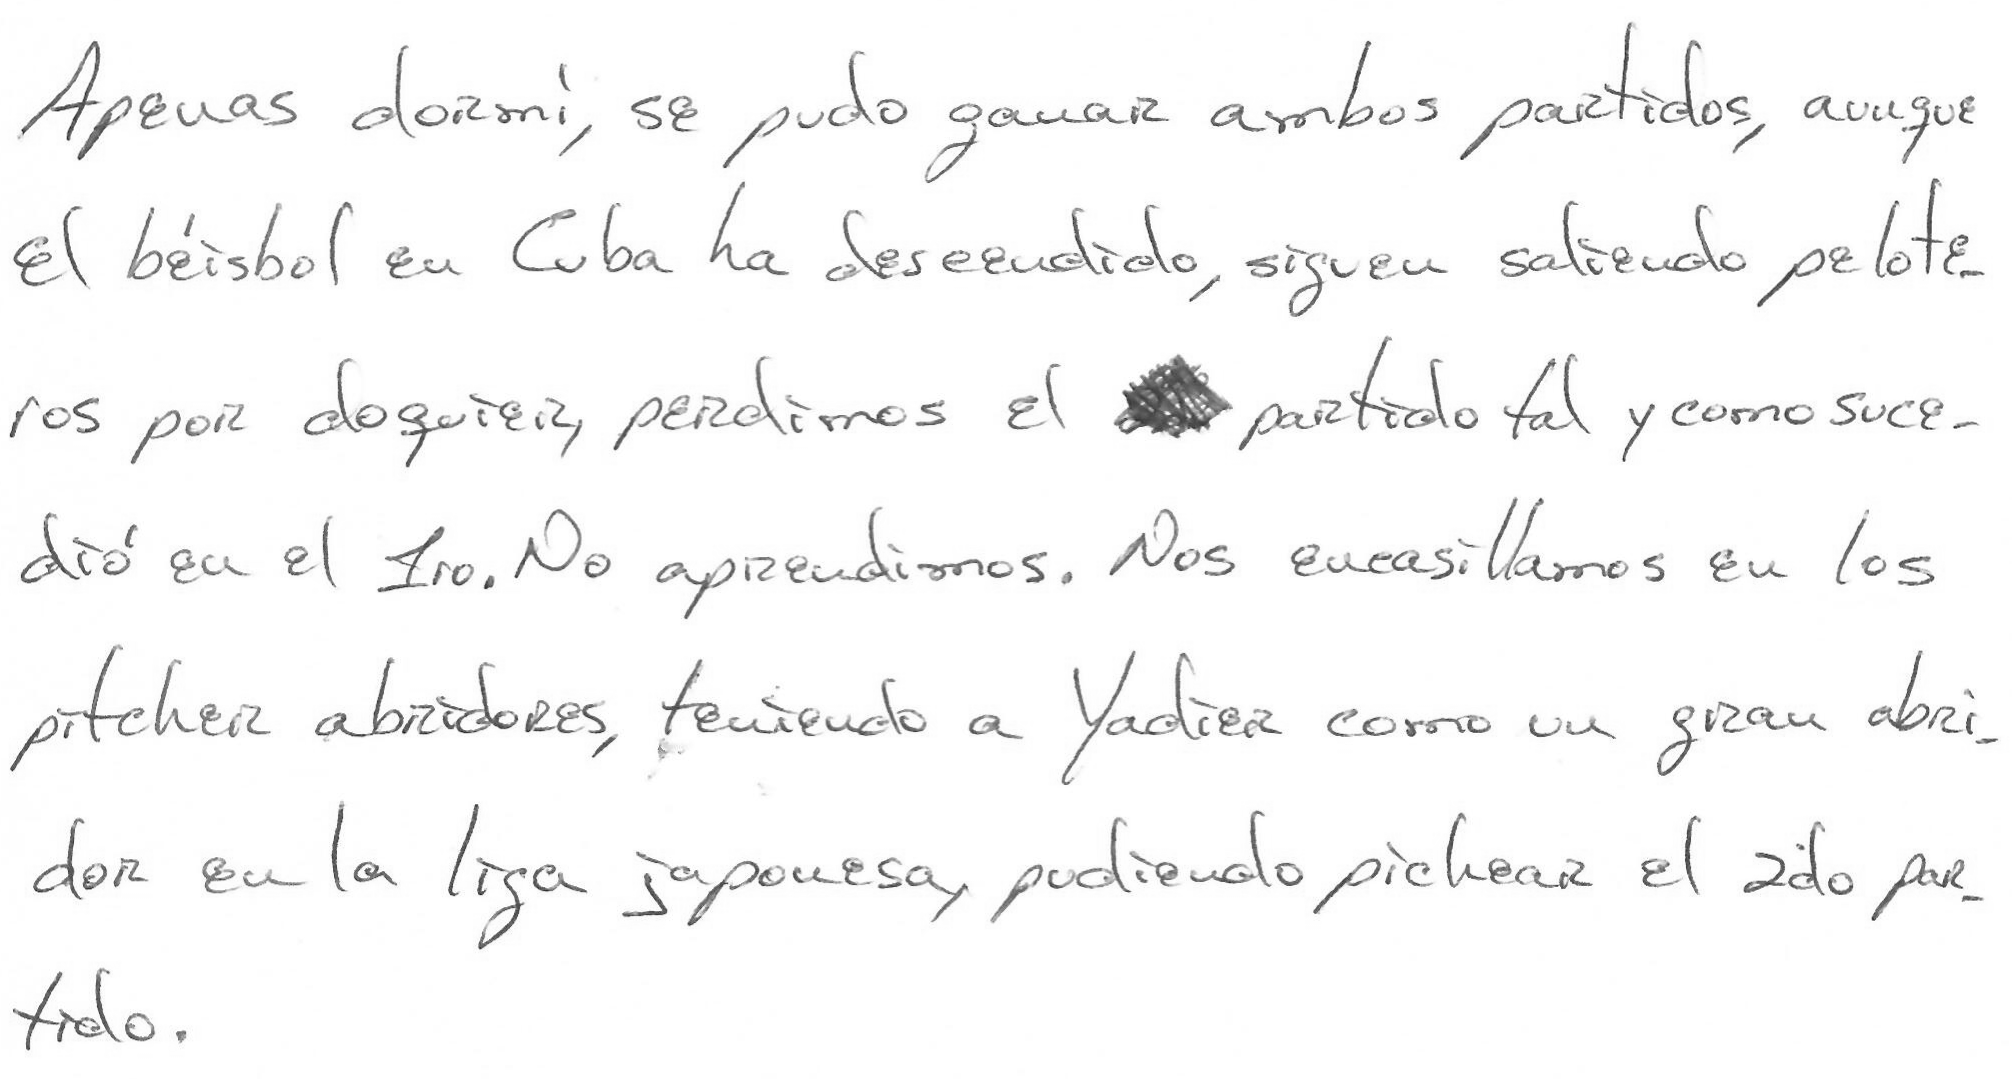 Apenas dormí, se pudo ganar ambos partidos, aunque
el béisbol en Cuba ha descendido, siguen saliendo pelote-
ros por doquier, perdimos el partido tal y como suce-
dió en el 1ro. No aprendimos. Nos encasillamos en los
pitcher abridores, teniendo a Yadier como un gran abri-
dor en la liga japonesa, pudiendo pichear el 2do par-
tido.